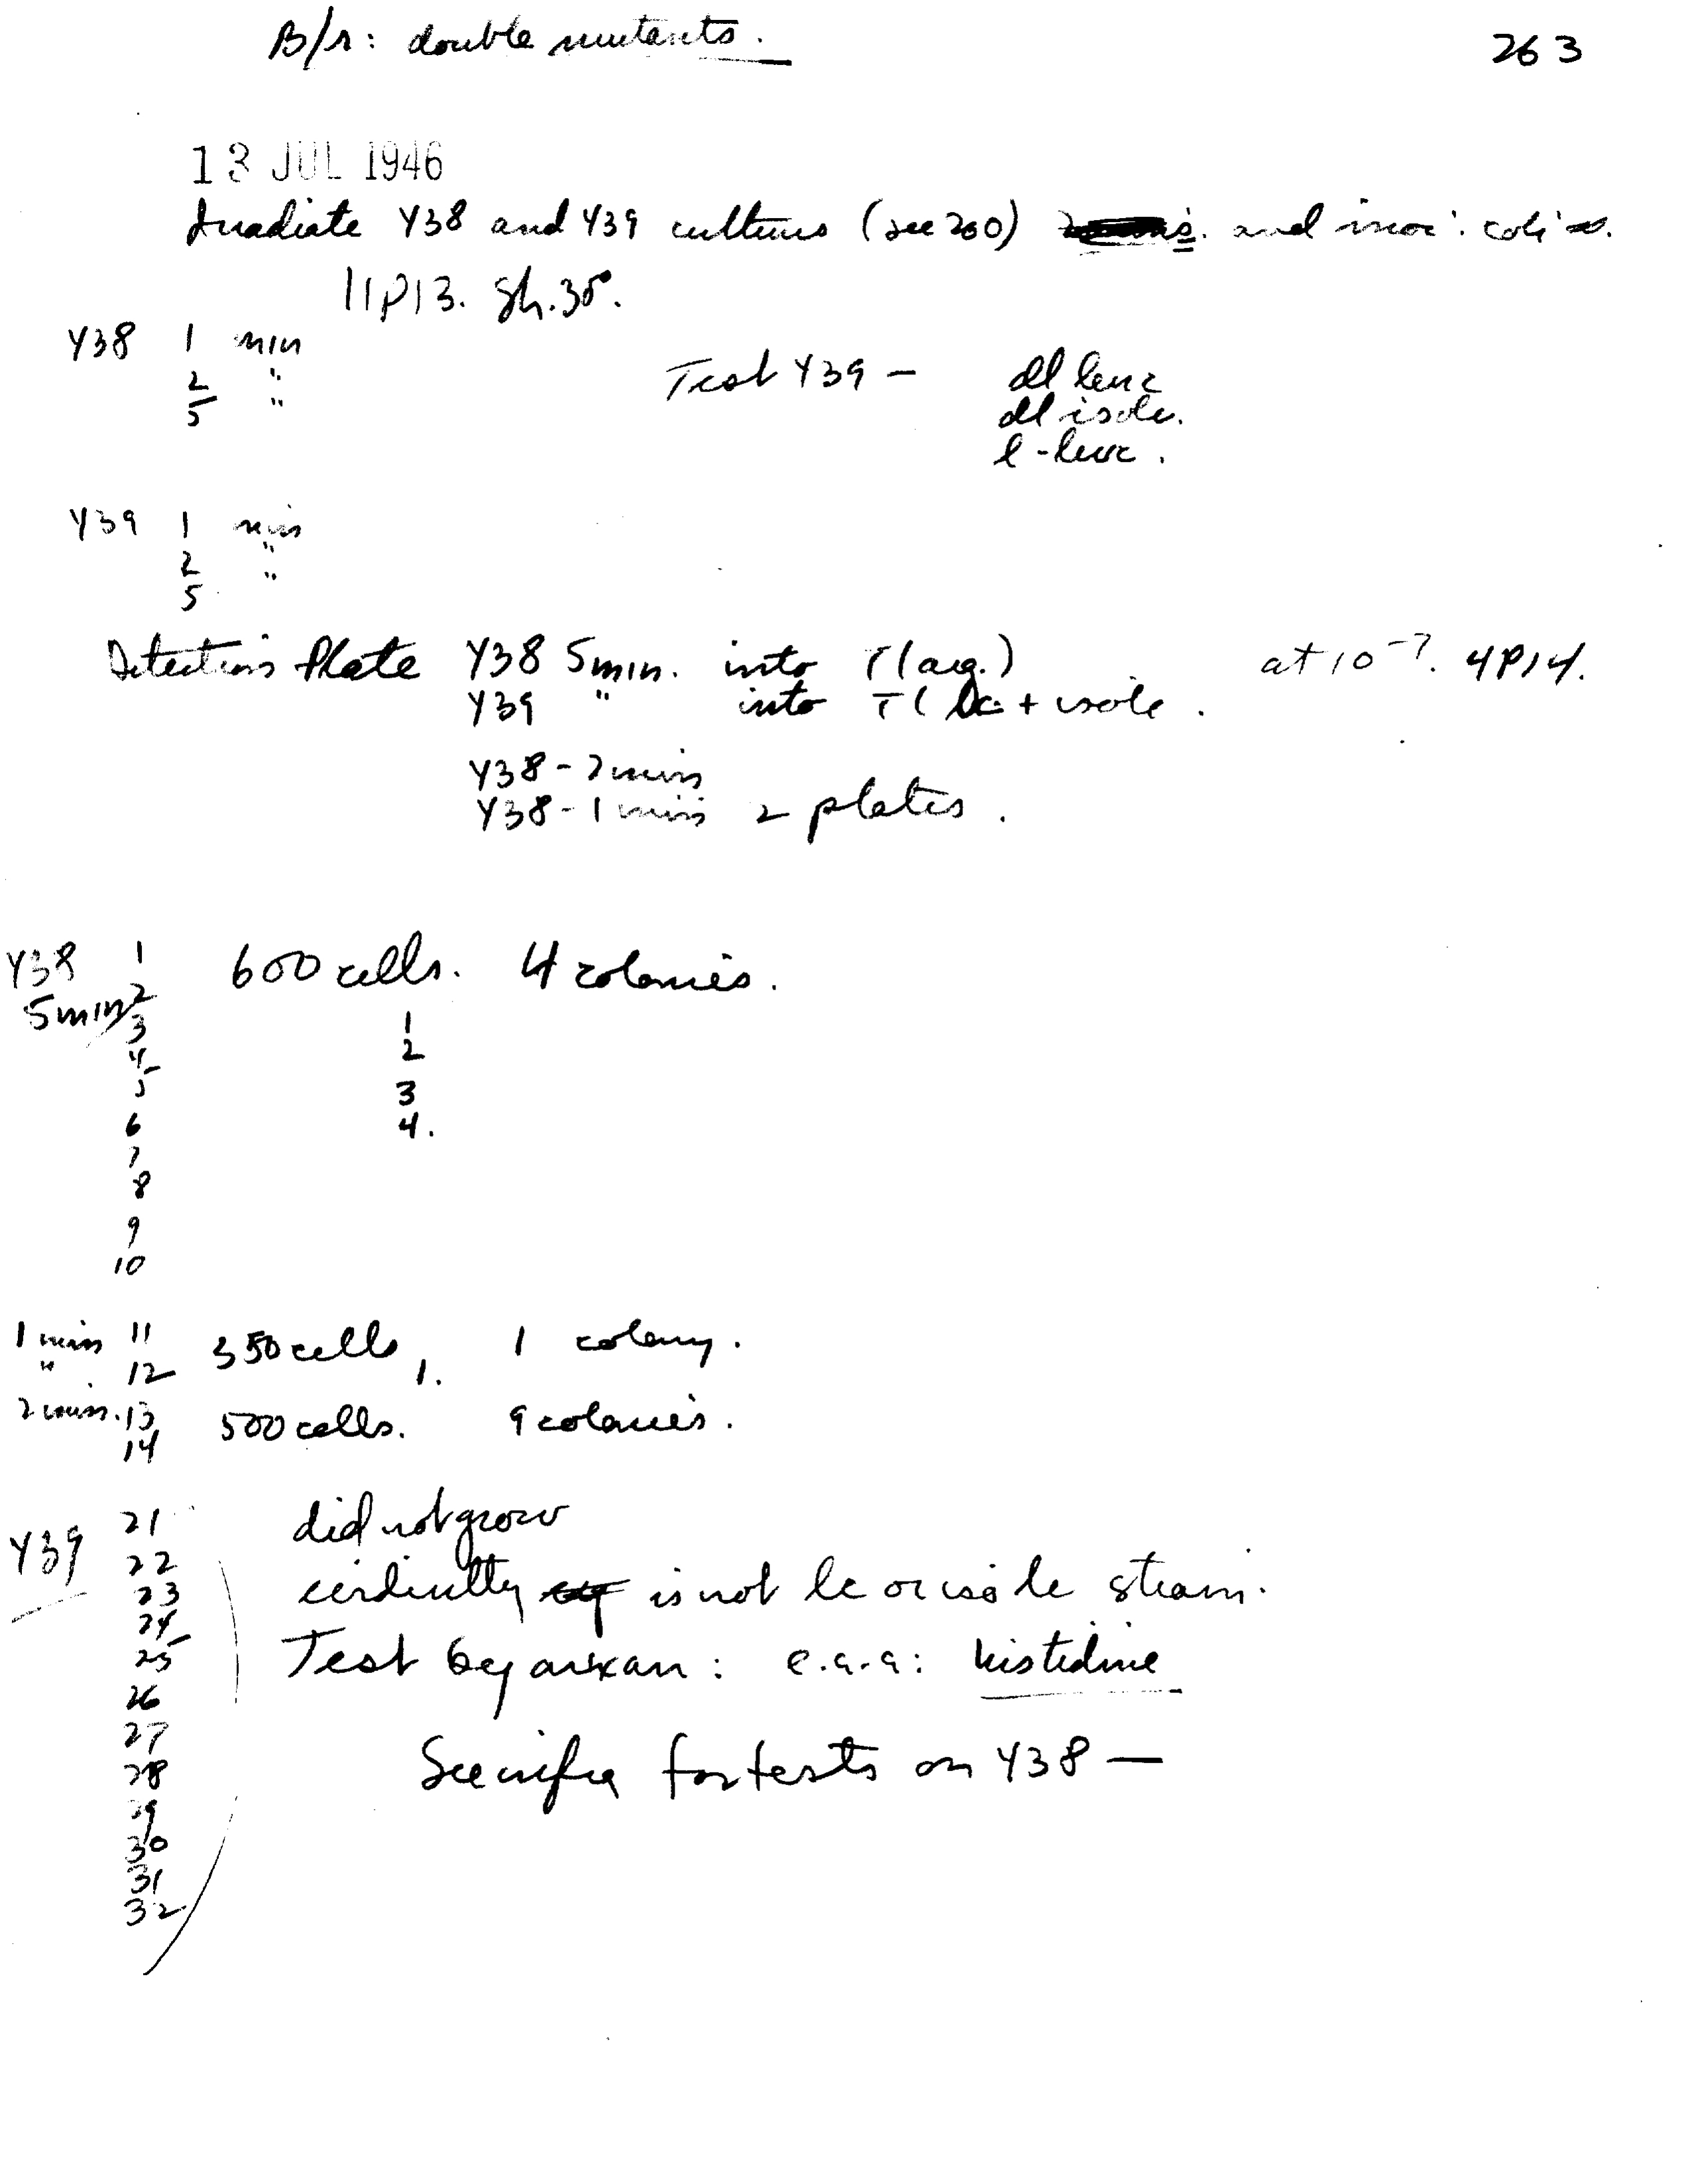 B/r: double mutants.
263
13 JUL 1946
Irradiate Y38 and Y39 cultures (see 260) and inoc.
11P13. Sh. 30°.
Y38 1 min
2 "
5 "
Test Y39 — dl leuc
dl isole.
l-leuc.
Y39 1 min
2 "
5 "
Detections Plate Y38 5 min. into T(arg.) at 10⁻⁷. 4P14.
Y39 " into T( lc + isole.
Y38 - 2 min
Y38 - 1 min 2 plates.
Y38 1 600 cells. 4 colonies.
5 min 2
3 1
4 2
5 3
6 4.
7
8
9
10
1 min 11 350 cells, 1 colony.
" 12 1.
2 min. 13 500 cells. 9 colonies.
14
Y39 21 did not grow
22
23 is not le or isole strain.
24
25 Test by : e.a.a: histidine
26
27
28 See infra for tests on Y38 —
29
30
31
32